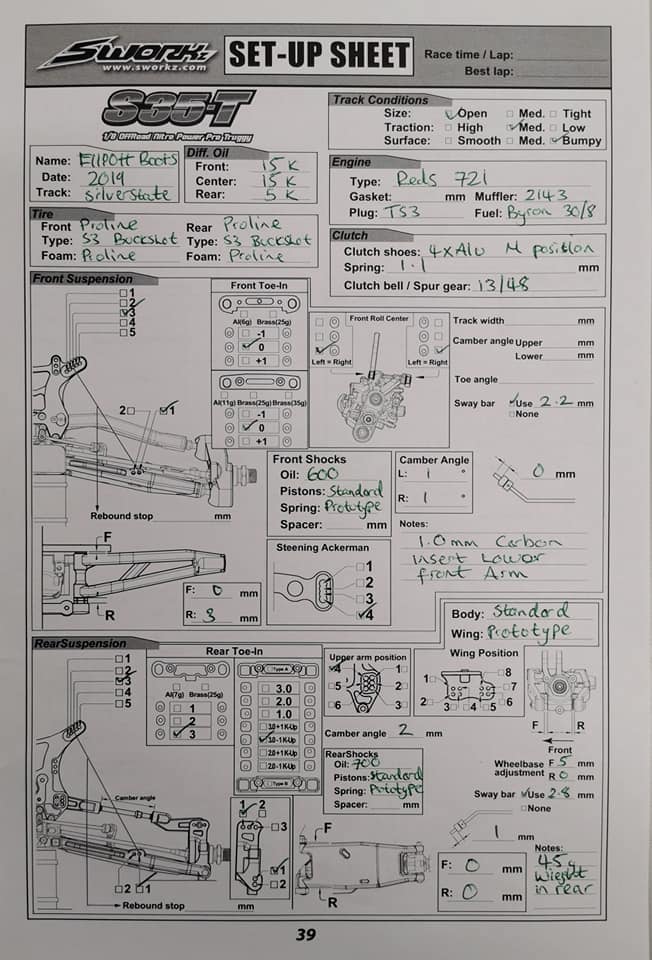 SWORKz
www.sworkz.com
SET-UP SHEET
Race time / Lap:
Best lap:
S35-T
1/8 OffRoad Nitro Power Pro Truggy
Track Conditions
Size: ✓ Open □ Med. □ Tight
Traction: □ High ✓ Med. □ Low
Surface: □ Smooth □ Med. ✓ Bumpy
Name: Elliott Boots
Date: 2019
Track: Silverstate
Diff. Oil
Front: 15 K
Center: 15 K
Rear: 5 K
Engine
Type: Reds 721
Gasket: mm Muffler: 2143
Plug: TS3 Fuel: Byron 30/8
Tire
Front Proline Rear Proline
Type: S3 Buckshot Type: S3 Buckshot
Foam: Proline Foam: Proline
Clutch
Clutch shoes: 4xAlu M position
Spring: 1.1 mm
Clutch bell / Spur gear: 13/48
Front Suspension
□ 1
□ 2
✓ 3
□ 4
□ 5
2 □ ✓ 1
Rebound stop mm
Front Toe-In
Al(6g) Brass(25g)
□ -1
✓ 0
□ +1
Al(11g) Brass(25g) Brass(35g)
□ -1
✓ 0
□ +1
Front Roll Center
Left = Right Left = Right
Track width mm
Camber angle Upper mm
Lower mm
Toe angle
Sway bar ✓ Use 2.2 mm
□ None
Front Shocks
Oil: 600
Pistons: Standard
Spring: Prototype
Spacer: mm
Camber Angle
L: 1 °
R: 1 °
0 mm
Notes:
1.0mm Carbon
insert Lower
front Arm
F
R
F: 0 mm
R: 3 mm
Steening Ackerman
□ 1
□ 2
□ 3
✓ 4
Body: Standard
Wing: Prototype
RearSuspension
□ 1
□ 2
✓ 3
□ 4
□ 5
Camber angle
□ 2 ✓ 1
Rebound stop mm
Rear Toe-In
Al(7g) Brass(25g)
□ 1
□ 2
✓ 3
Type A
□ 3.0
□ 2.0
□ 1.0
□ 3.0+1K-Up
✓ 3.0-1K-Up
□ 2.0+1K-Up
□ 2.0-1K-Up
Type B
1 ✓ 2
□ 3
✓ 1
□ 2
Upper arm position
✓ 4 1 □
□ 5 2 □
□ 6 3 □
Camber angle 2 mm
RearShocks
Oil: 700
Pistons: Standard
Spring: Prototype
Spacer: mm
Wing Position
1 □ □ 8
□ 7
2 □ 3 □ 4 □ 5 □ 6
F R
Front
Wheelbase adjustment F 5 mm
R 0 mm
Sway bar ✓ Use 2.8 mm
□ None
1 mm
F
R
F: 0 mm
R: 0 mm
Notes:
45g
Wieght
in rear
39